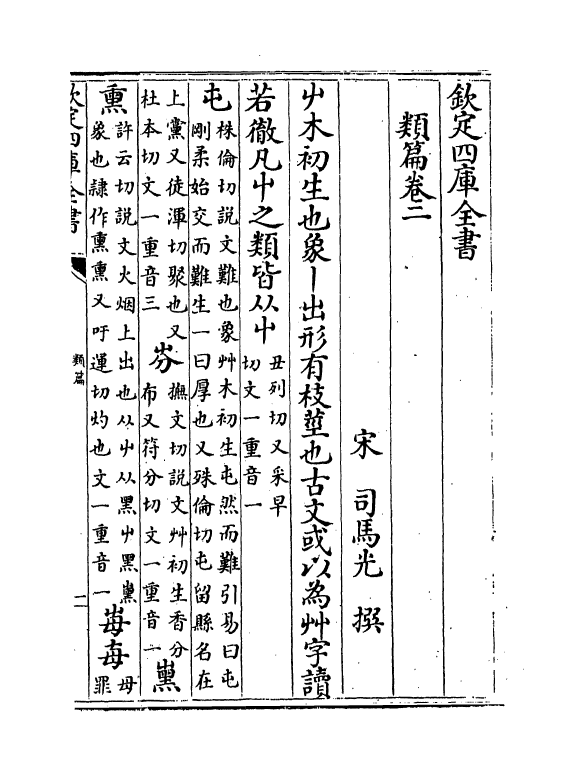 欽定四庫全書
類篇卷二
宋 司馬光 撰
屮木初生也象丨出形有枝莖也古文或以為艸字讀
若徹凡屮之類皆从屮丑列切又采早
切文一重音一
屯株倫切說文難也象艸木初生屯然而難引易曰屯
剛柔始交而難生一曰厚也又殊倫切屯留縣名在
上黨又徒渾切聚也又
杜本切文一重音三
芬撫文切說文艸初生香分
布又符分切文一重音一
熏
許云切說文火烟上出也从屮从黑屮黑熏
象也隷作熏熏又吁運切灼也文一重音一
母
罪
欽定四庫全書
類篇
二